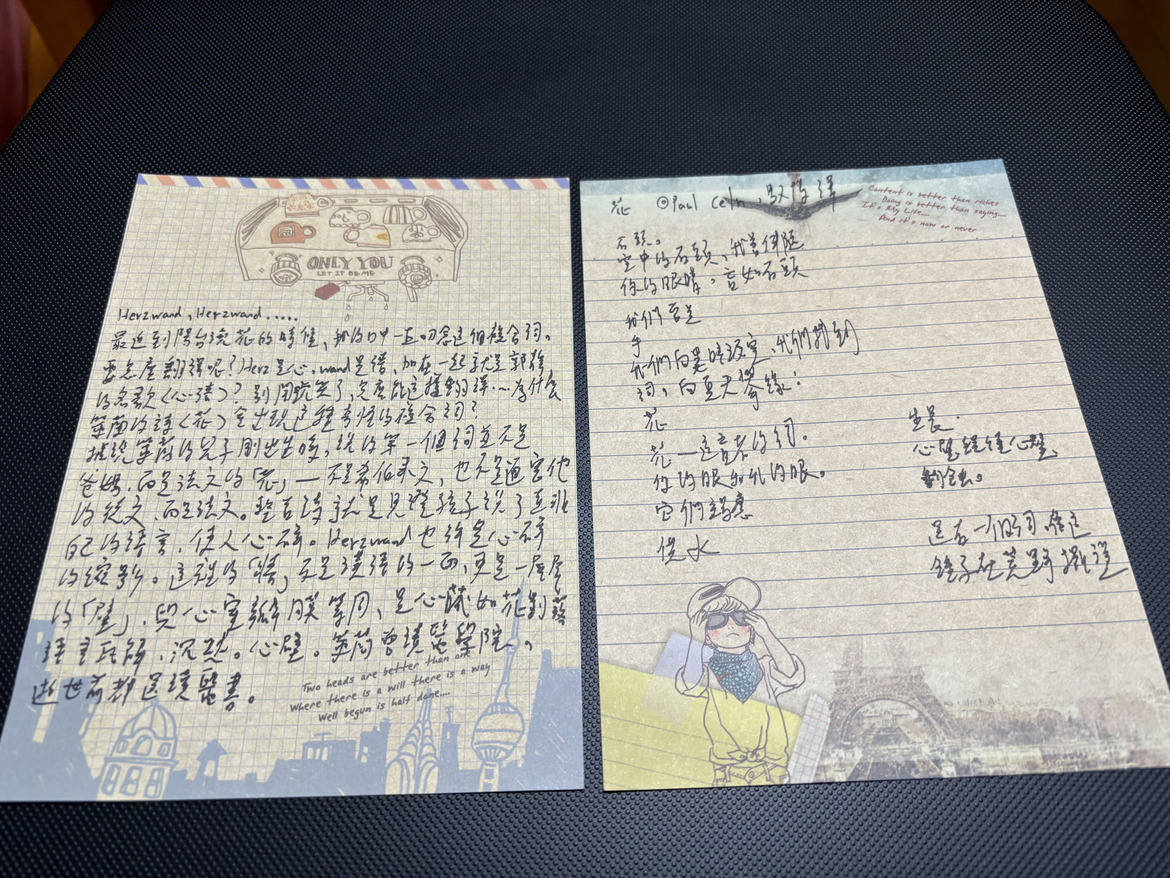 ONLY YOU
LET IT BE ME
Herzwand, Herzwand.....
最近到陽台澆花的時候,我的口中一直叨念這個複合詞。
要怎麼翻譯呢?Herz是心,wand是牆,加在一起就是郭
的名歌〈心牆〉?別開玩笑了,怎麼能這樣翻譯...為什麼
策蘭的詩〈花〉會出現這種奇怪的複合詞?
據說策蘭的兒子剛出生時,說的第一個詞並不是
爸媽,而是法文的「花」——不是希伯來文,也不是通寄他
的德文,而是法文。整首詩就是見證孩子說了並非
自己的語言,使人心碎。Herzwand也許是心碎
的縮影。這裡的「牆」,不是漢語的一面,更是一層層
的「壁」,與心室瓣膜等同,是心臟如花
語言,沉默。心壁。策蘭曾讀醫學院,
逝世前都還讀醫書。
Two heads are better than one
Where there is a will there is a way
Well begun is half done....
花 ◎Paul Celn,譯
Content is better than riches
Doing is better than saying...
It's My Life...
And it's now or never
石頭。
空中的石頭,我曾伴隨
你的眼睛,盲如石頭
我們曾是
手
我們向黑暗,我們找到
詞,向夏天攀緣:
花
花—這盲者的詞。
你的眼和我的眼。
它們
供水
生長.
心壁疊偎心壁,
還有一個詞,像這
錘子在荒野擺盪